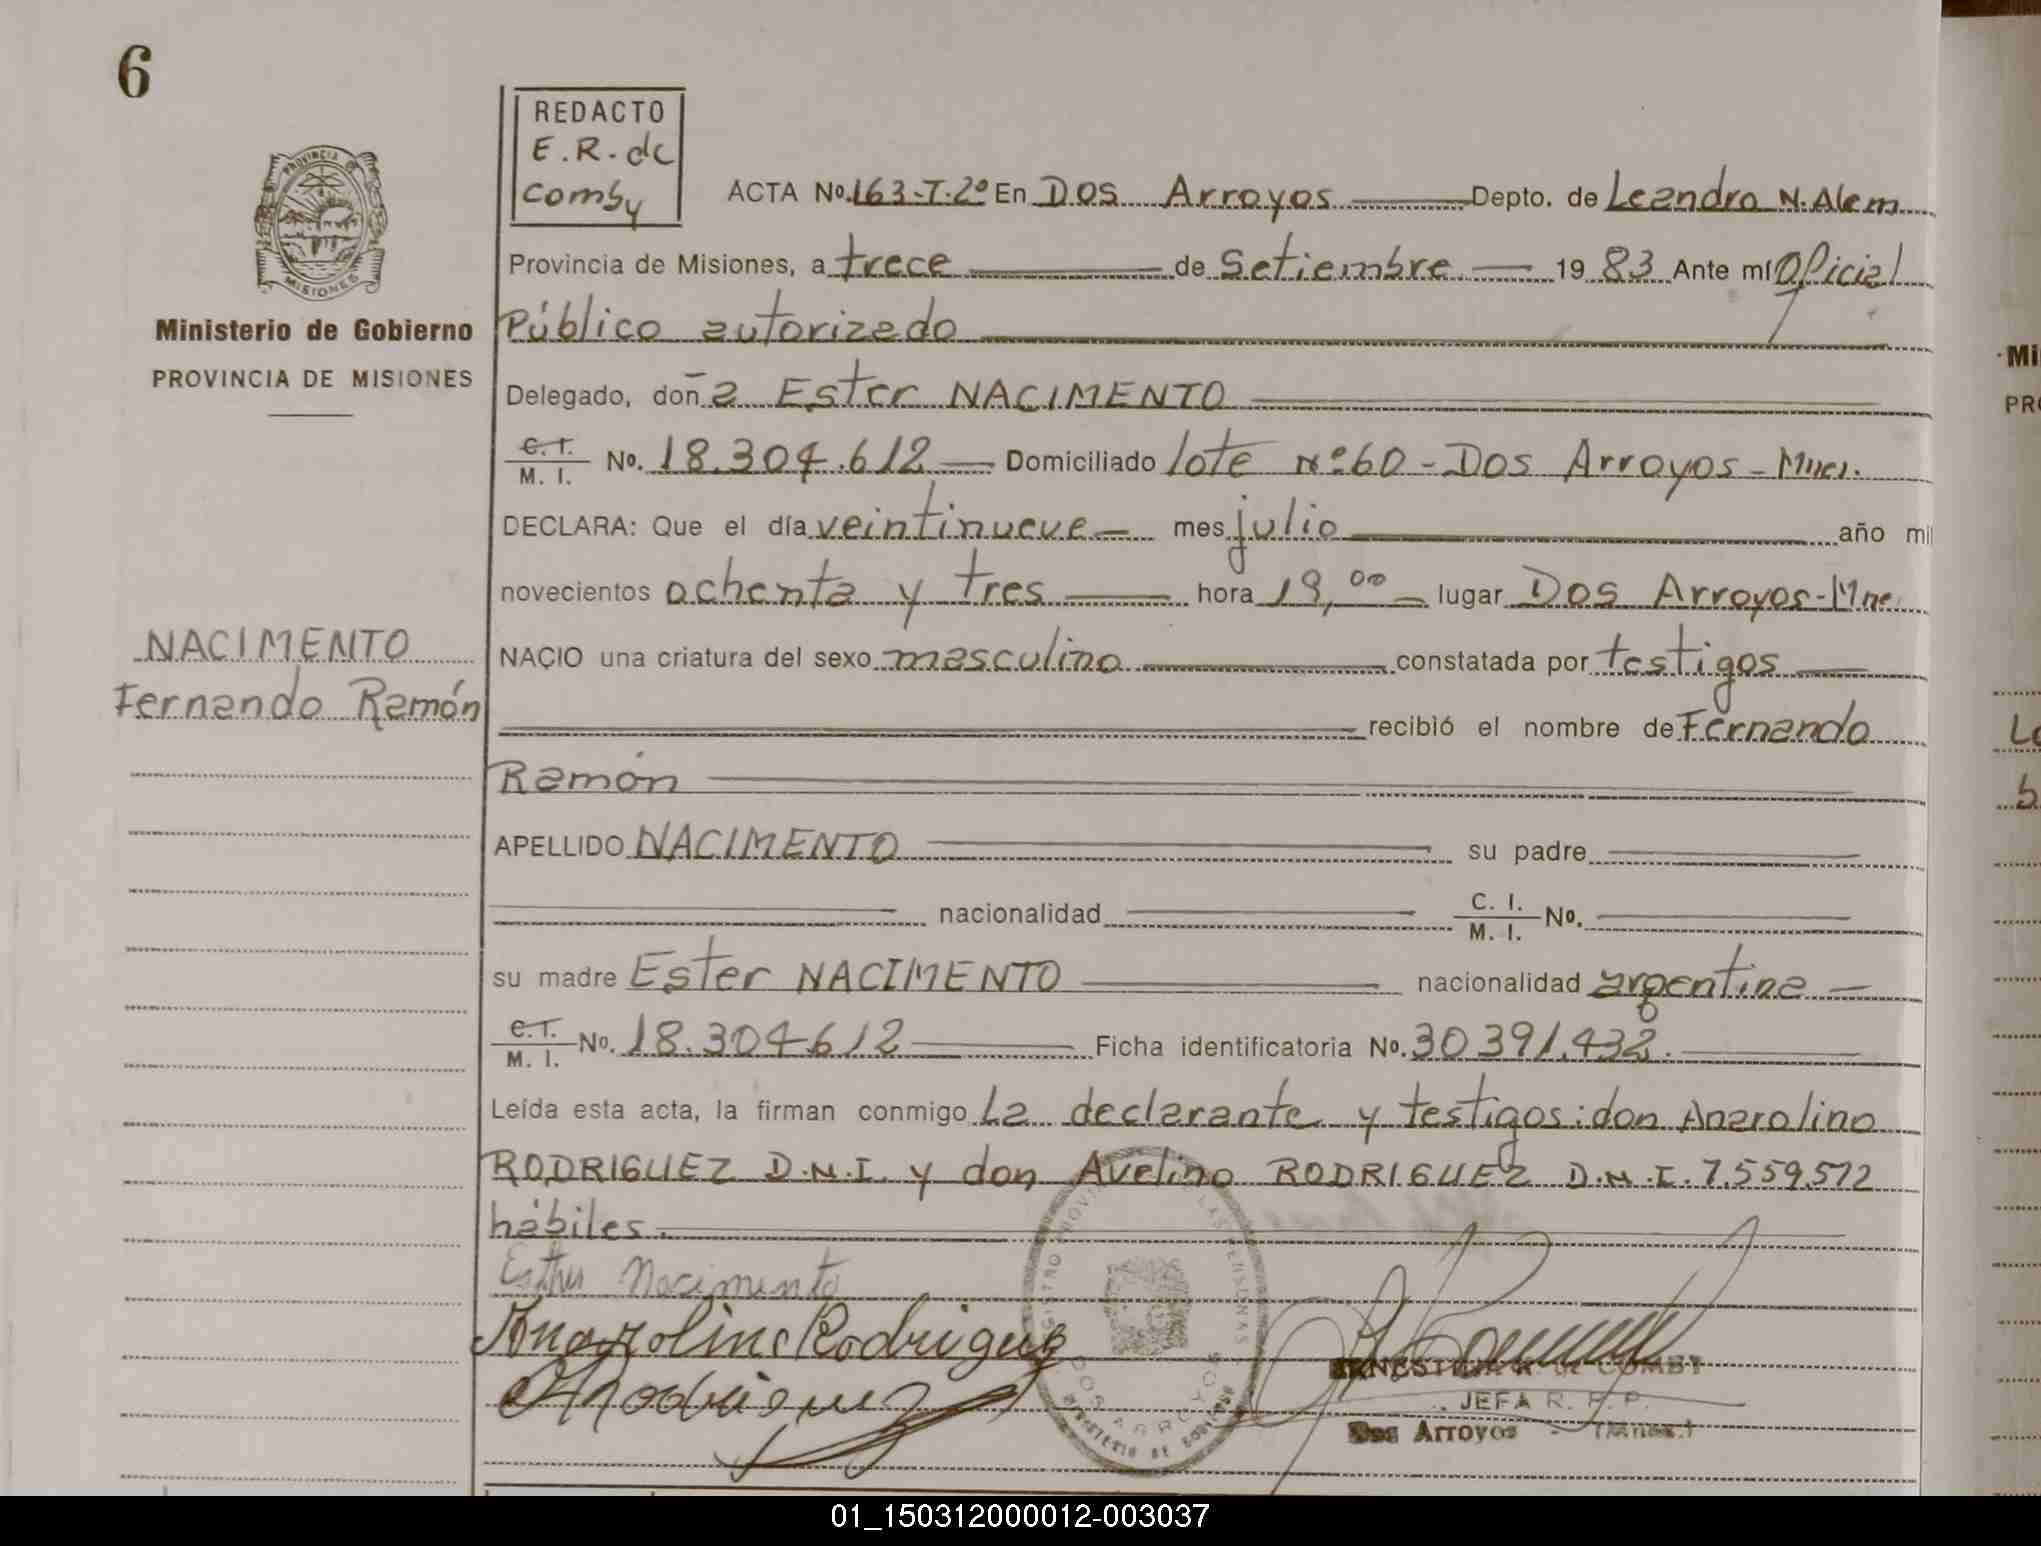 6
REDACTO
E.R. de
Comby
ACTA Nº. 163-T.2º En Dos Arroyos Depto. de Leandro N. Alem
Provincia de Misiones, a trece de Setiembre 19 83 Ante mí Oficial
Público autorizado
PROVINCIA DE
MISIONES
Ministerio de Gobierno
PROVINCIA DE MISIONES
Delegado, doña Ester NACIMENTO
C. I.
M. I. Nº. 18.304.612 Domiciliado lote Nº 60 - Dos Arroyos - Mnes.
DECLARA: Que el día veintinueve mes julio año mil
novecientos ochenta y tres hora 19,00 lugar Dos Arroyos - Mnes
NACIMENTO
Fernando Ramón
NACIO una criatura del sexo masculino constatada por testigos
recibió el nombre de Fernando
Ramón
APELLIDO NACIMENTO su padre
nacionalidad C. I.
M. I. Nº.
su madre Ester NACIMENTO nacionalidad argentina
C. I.
M. I. Nº. 18.304612 Ficha identificatoria Nº. 30391.432.
Leída esta acta, la firman conmigo La declarante y testigos: don Anarolino
RODRIGUEZ D.N.I. y don Avelino RODRIGUEZ D.N.I. 7.559.572
hábiles.
Esther Nacimento
Anarolino Rodriguez
DOS ARROYOS
MINISTERIO DE GOBIERNO
DE COMBY
JEFA R. P. P.
Dos Arroyos - (Mnes.)
Mi
PR
01_150312000012-003037